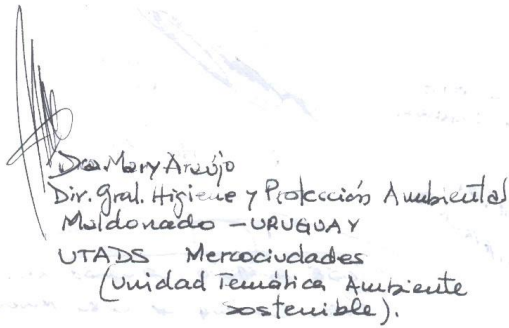 Dra. Mary Araújo
Dir. Gral. Higiene y Protección Ambiental
Maldonado - URUGUAY
UTADS Mercociudades
(Unidad Temática Ambiente
sostenible).